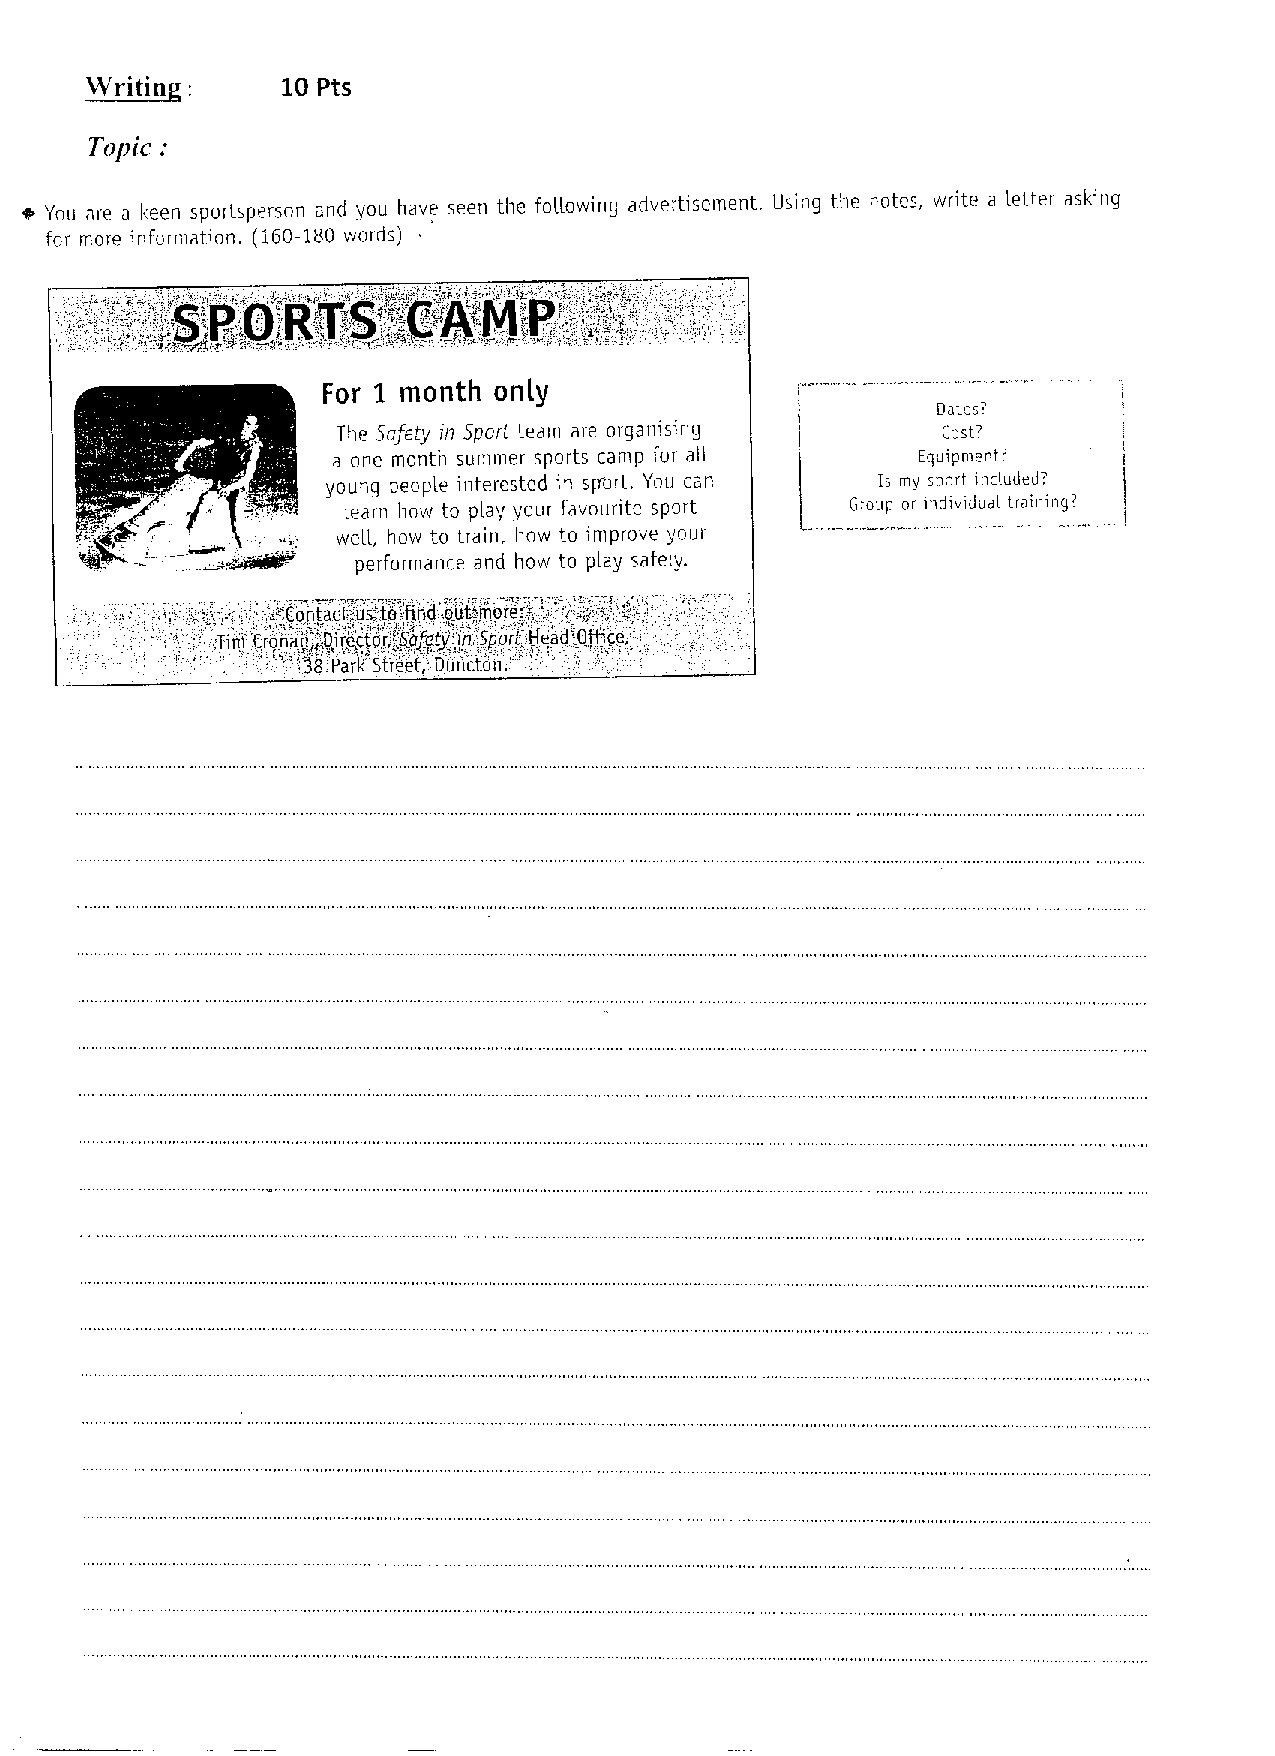 Writing : 10 Pts
Topic :
You are a keen sportsperson and you have seen the following advertisement. Using the notes, write a letter asking
for more information. (160-180 words)
SPORTS CAMP
For 1 month only
The Safety in Sport team are organising
a one month summer sports camp for all
young people interested in sport. You can
learn how to play your favourite sport
well, how to train, how to improve your
performance and how to play safely.
Contact us to find out more:
Tim Cronau, Director, Safety in Sport Head Office,
38 Park Street, Duncton.
Dates?
Cost?
Equipment?
Is my sport included?
Group or individual training?